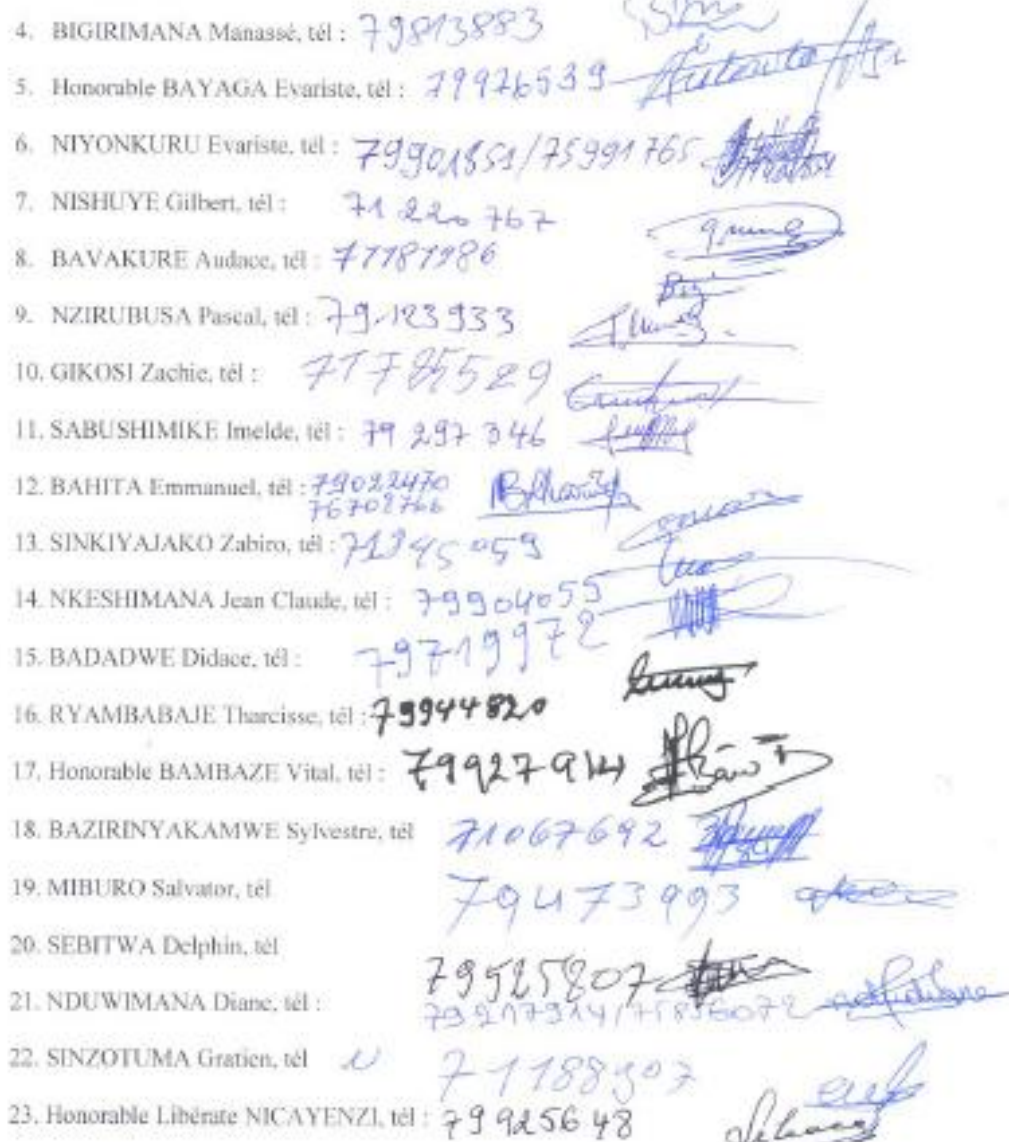 4. BIGIRIMANA Manassé, tél : 79813883
5. Honorable BAYAGA Evariste, tél : 79926539
6. NIYONKURU Evariste, tél : 79901851/75991765
7. NISHUYE Gilbert, tél : 71 220 767
8. BAVAKURE Audace, tél : 77781986
9. NZIRUBUSA Pascal, tél : 79.123933
10. GIKOSI Zachie, tél : 71785529
11. SABUSHIMIKE Imelde, tél : 79 297 346
12. BAHITA Emmanuel, tél : 79022470
76702766
13. SINKIYAJAKO Zabiro, tél : 71345 059
14. NKESHIMANA Jean Claude, tél : 79904055
15. BADADWE Didace, tél : 79719972
16. RYAMBABAJE Tharcisse, tél : 79944820
17. Honorable BAMBAZE Vital, tél : 79927914
18. BAZIRINYAKAMWE Sylvestre, tél 71067692
19. MIBURO Salvator, tél 79473993
20. SEBITWA Delphin, tél 79525807
21. NDUWIMANA Diane, tél :
22. SINZOTUMA Gratien, tél 71188307
23. Honorable Libérate NICAYENZI, tél : 79925648